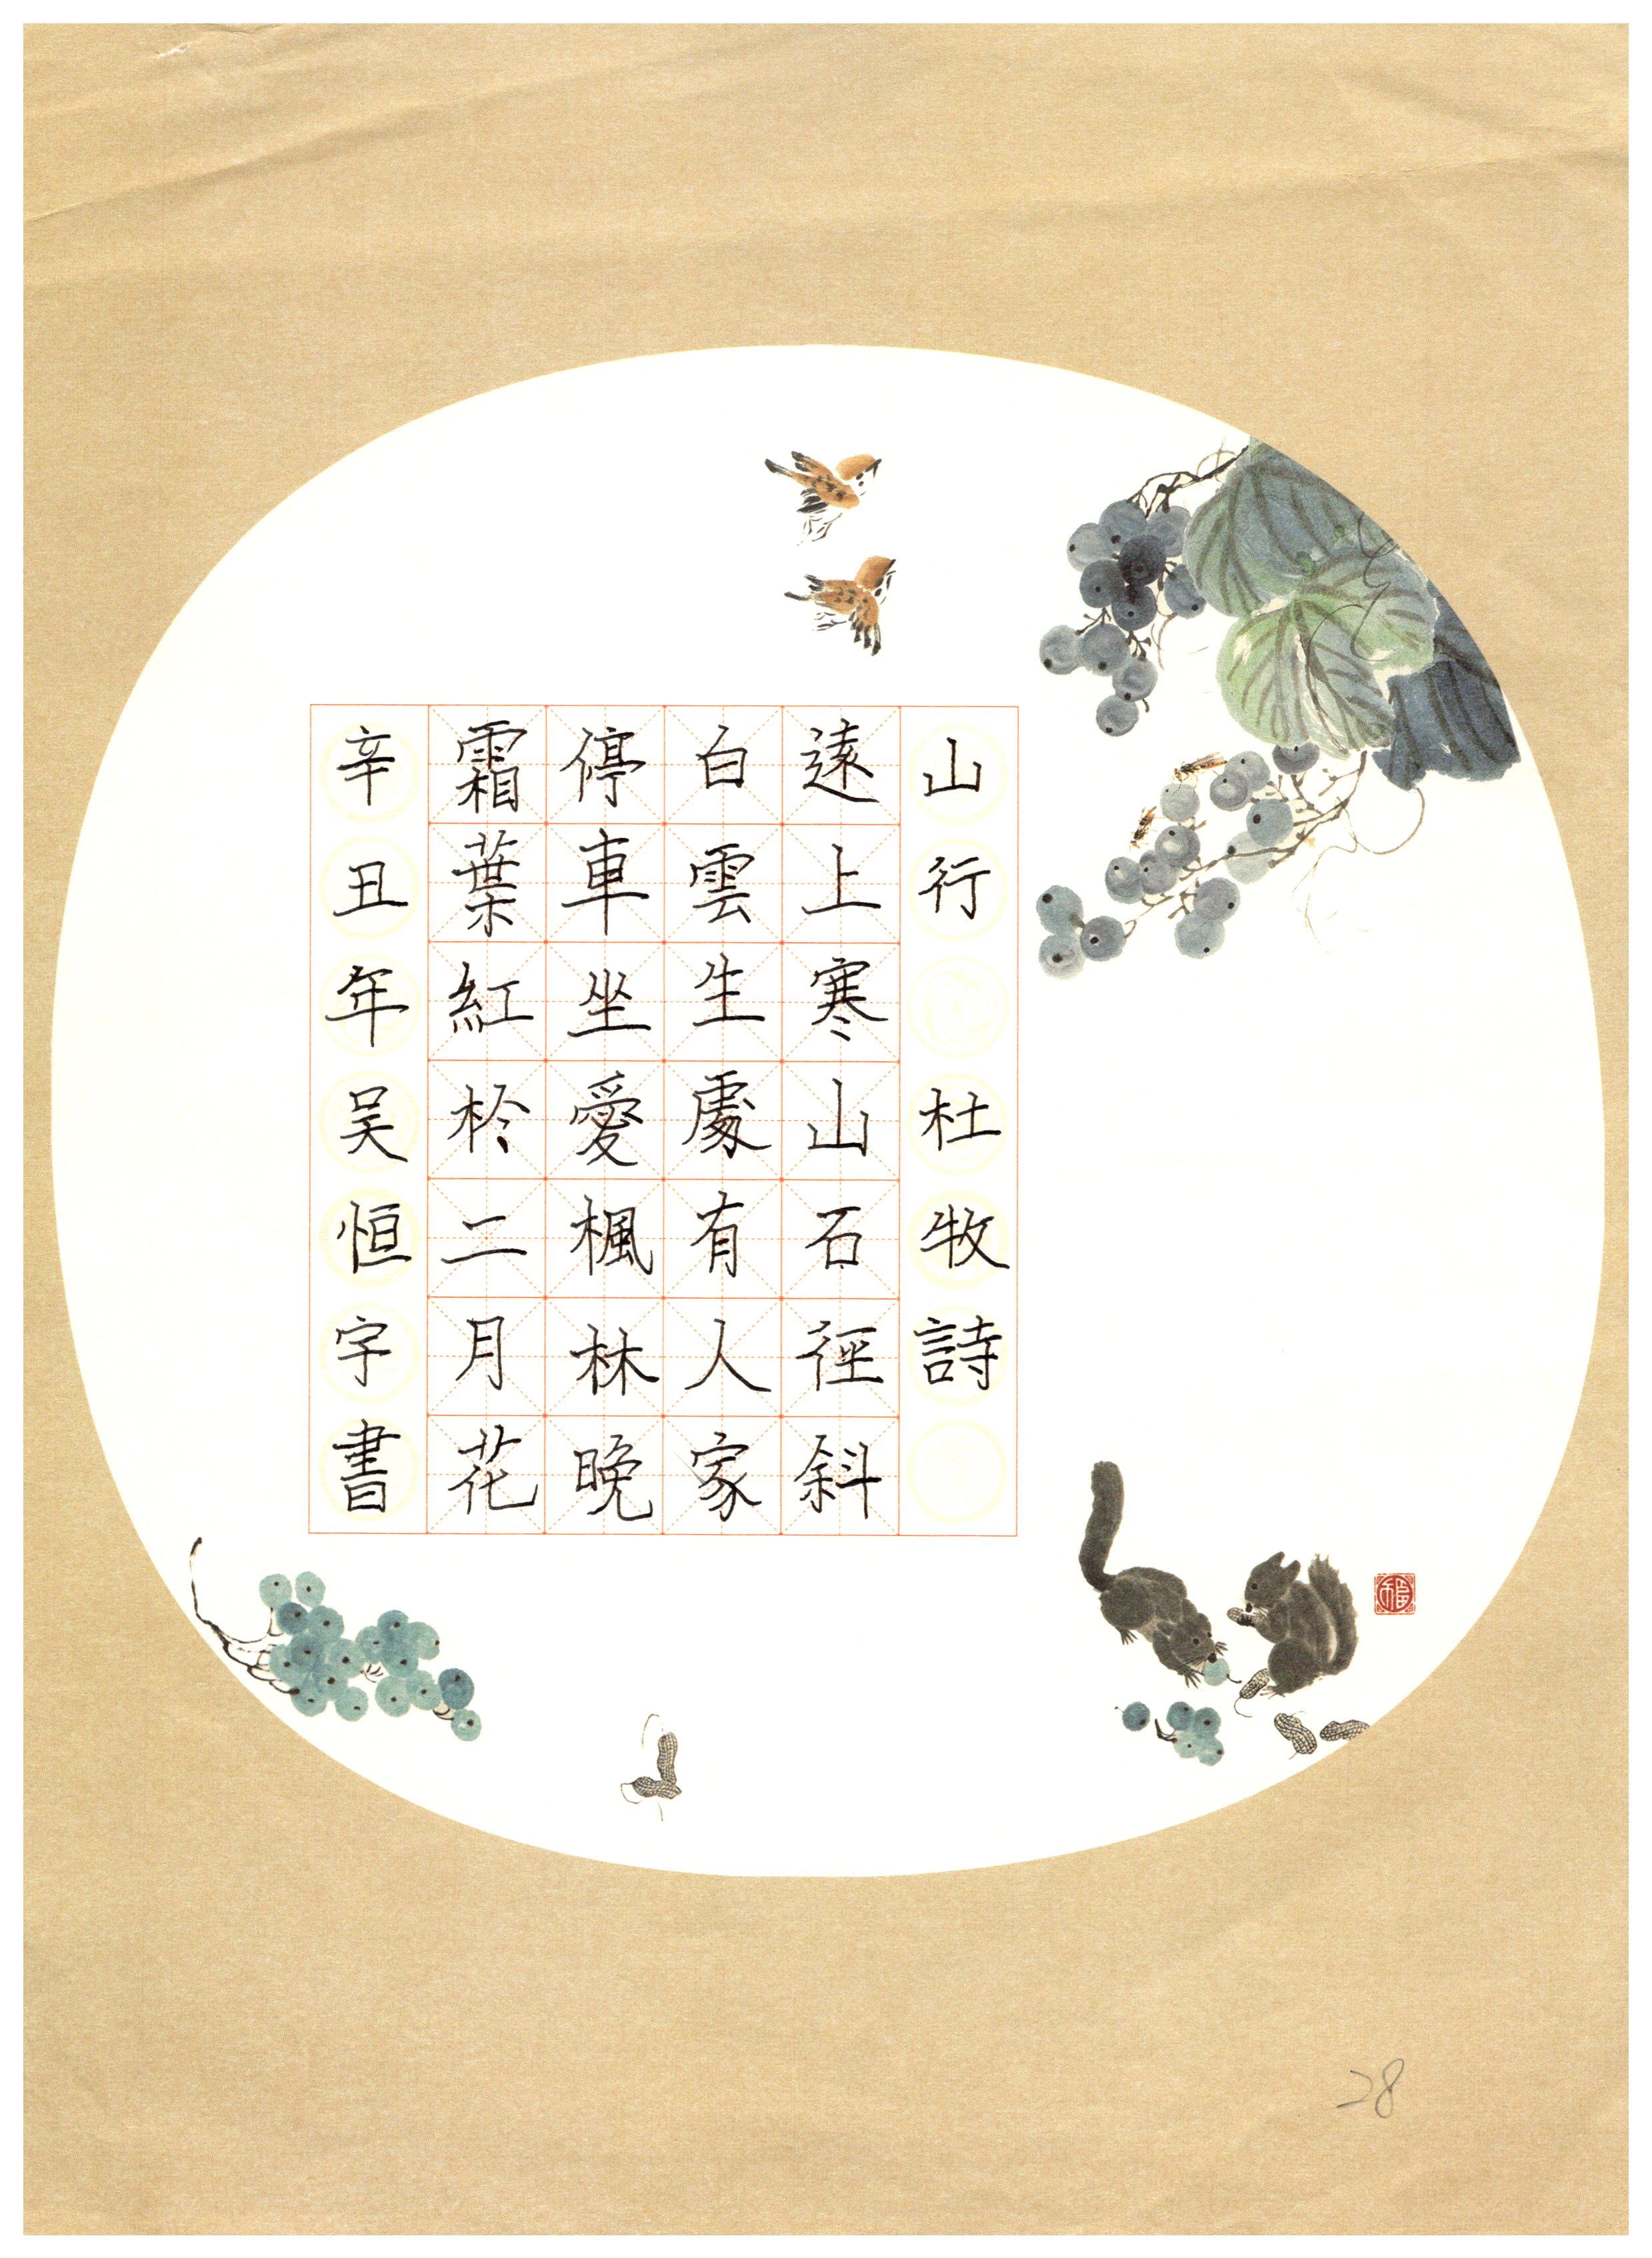 山行 杜牧詩
遠上寒山石徑斜
白雲生處有人家
停車坐愛楓林晚
霜葉紅於二月花
辛丑年吴恒宇書
福
28